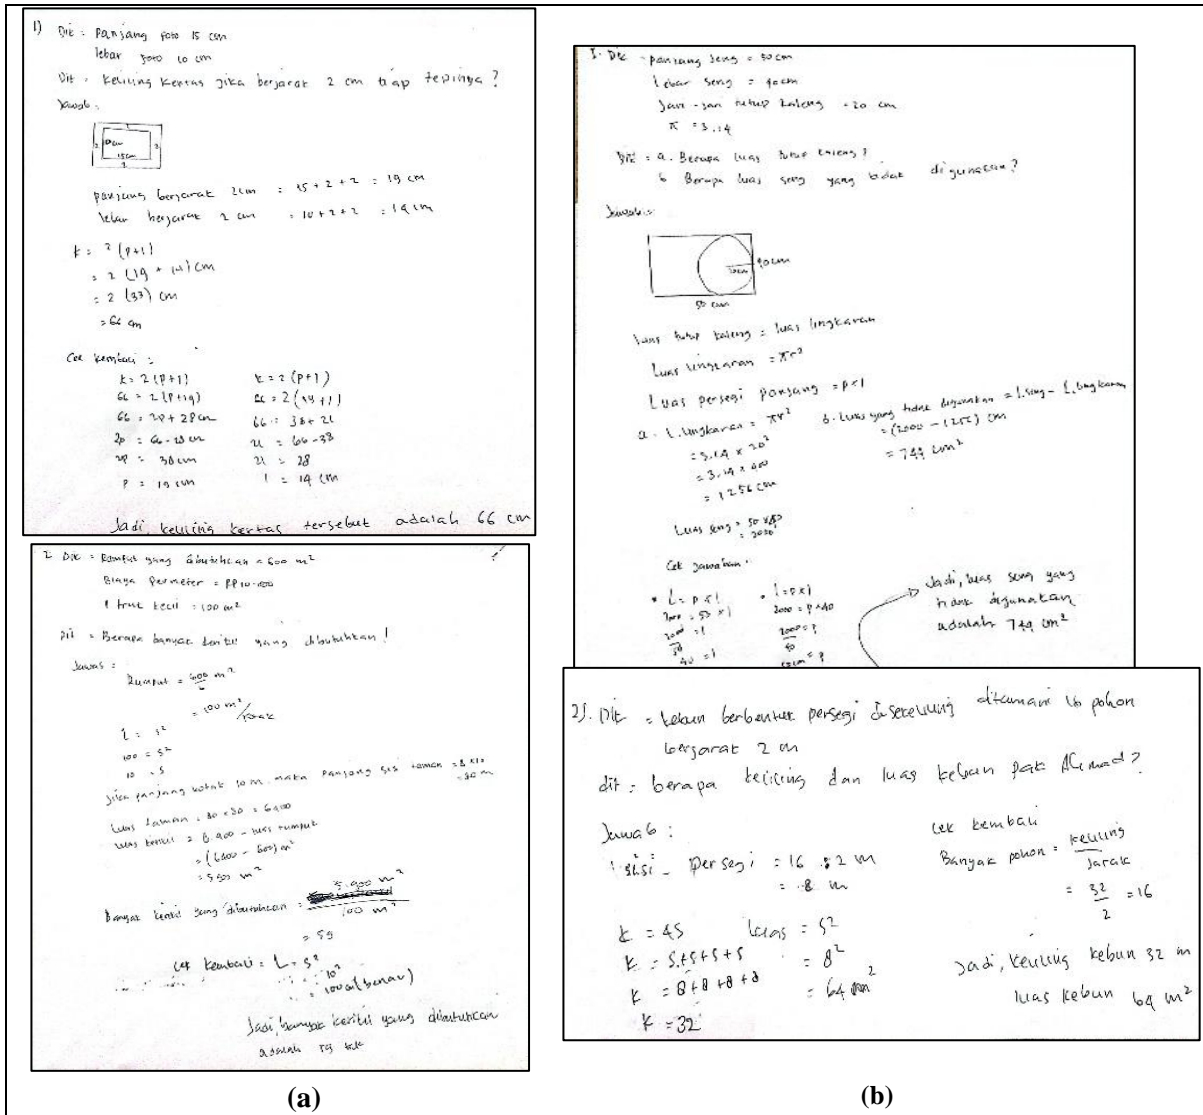 1) Dik : Panjang foto 15 cm
lebar foto 10 cm
Dit : Keliling Kertas Jika berjarak 2 cm tiap tepinya ?
Jawab :
2
2 10cm 2
15cm
2
panjang berjarak 2cm = 15 + 2 + 2 = 19 cm
lebar berjarak 2 cm = 10 + 2 + 2 = 14 cm
K = 2 (P+l)
= 2 (19 + 14) cm
= 2 (33) cm
= 66 cm
Cek kembali :
K = 2 (P+l) K = 2 (P+l)
66 = 2 (P+14) 66 = 2 (19+l)
66 = 2P + 28 cm 66 = 38 + 2l
2P = 66-28 cm 2l = 66-38
2P = 38 cm 2l = 28
P = 19 cm l = 14 cm
Jadi, keliling kertas tersebut adalah 66 cm
2. Dik = Rumput yang dibutuhkan = 600 m²
Biaya Permeter = RP10.000
1 truk kecil = 100 m²
Dit = Berapa banyak kerikil yang dibutuhkan !
Jawab :
Rumput = 600/6 m²
= 100 m²/
L = s²
100 = s²
10 = s
Jika panjang kotak 10 m maka panjang sisi taman = 8 x 10
= 80 m
Luas taman = 80 x 80 = 6400
Luas kerikil = 6.400 - luas rumput
= (6400 - 600) m²
= m²
Banyak kerikil yang dibutuhkan = 5.900 m²
100 m²
= 59
Cek kembali = L = s²
= 10²
= 100 (benar)
Jadi, banyak kerikil yang dibutuhkan
adalah 59 truk
(a)
3. Dik = panjang seng = 50 cm
Lebar seng = 40cm
Jari-jari tutup kaleng = 20 cm
π = 3.14
Dit = a. Berapa luas tutup kaleng ?
b Berapa luas seng yang tidak digunakan ?
Jawab :
20cm 40cm
50 cm
Luas tutup kaleng = luas lingkaran
Luas lingkaran = πr²
Luas persegi panjang = p×l
a. L.lingkaran = πr²
= 3.14 × 20²
= 3.14 × 400
= 1256 cm
Luas seng = 50 × 40
= 2000
b. Luas yang tidak digunakan = L.seng - L.lingkaran
= (2000 - 1256) cm
= 744 cm²
Cek jawaban :
• L = P × l • L = P × l
2000 = 50 × l 2000 = P × 40
2000 = l
50
40 = l
Jadi, luas seng yang
tidak digunakan
adalah 744 cm²
2). Dik = kebun berbentuk persegi disekeliling ditanami 16 pohon
berjarak 2 m
dit = berapa keliling dan luas kebun pak Ahmad ?
Jawab :
persegi = 16 : 2 m
= 8 m
K = 4S
K = S+S+S+S
K = 8 + 8 + 8 + 8
K = 32
Luas = S²
= 8²
= 64 m²
cek kembali
Banyak pohon = keliling
jarak
= 32 = 16
2
Jadi, keliling kebun 32 m
luas kebun 64 m²
(b)